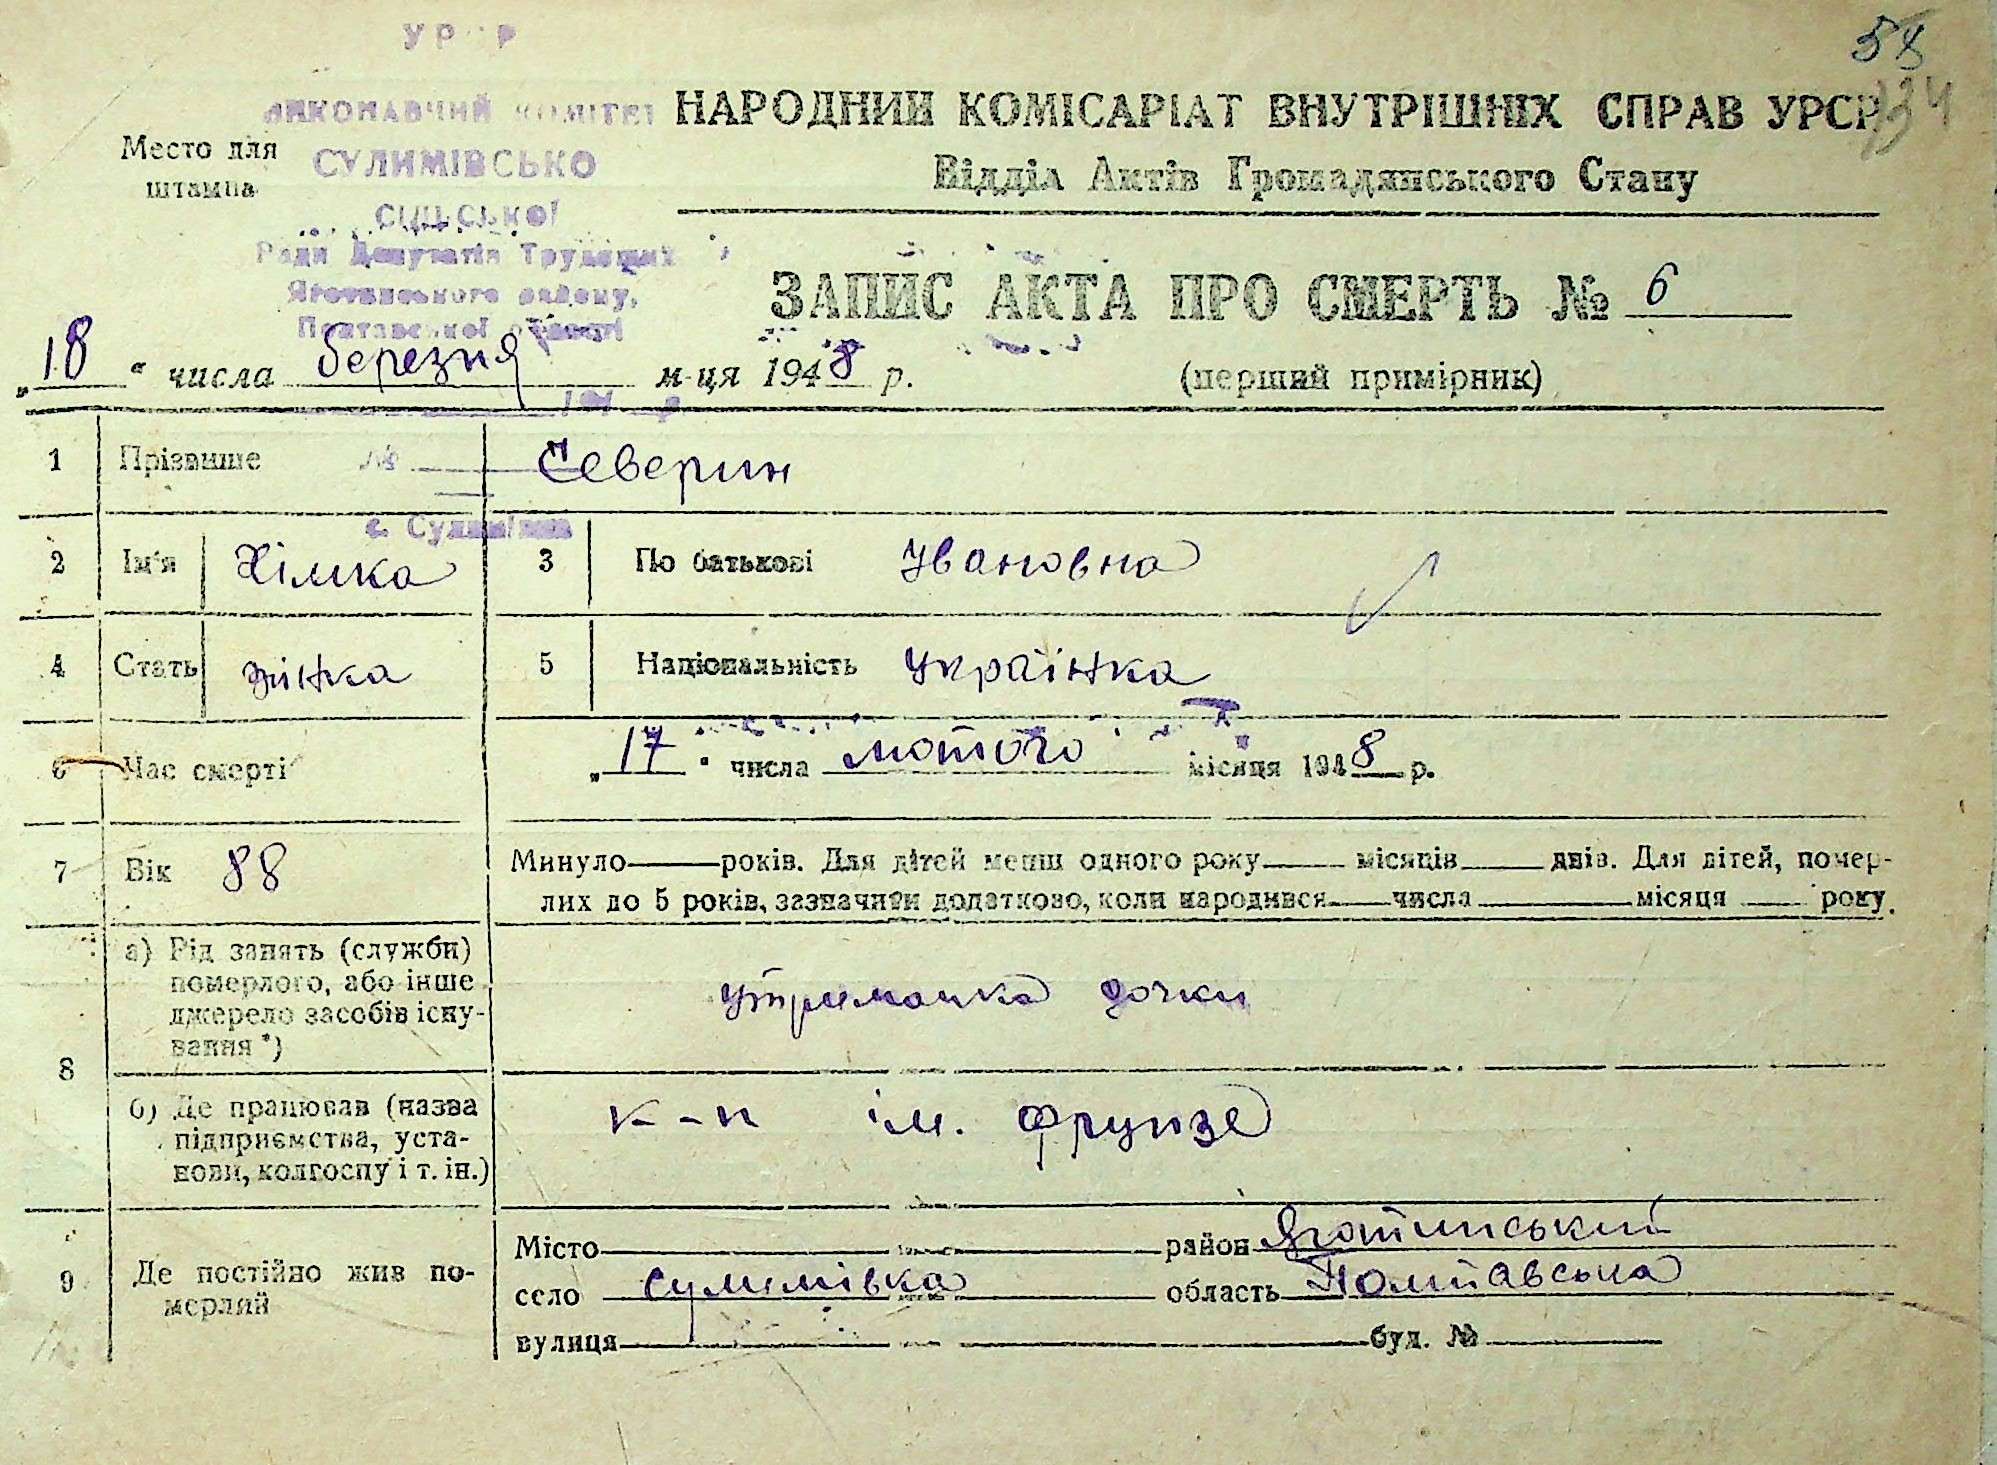 58
УРСР
134
ВИКОНАВЧИЙ КОМІТЕТ
НАРОДНИЙ КОМІСАРІАТ ВНУТРІШНІХ СПРАВ УРСР
Место для штампа
СУЛИМІВСЬКО
Відділ Актів Громадянського Стану
СІЛЬСЬКОЇ
Ради Депутатів Трудящих
Яготинського району,
Полтавської області
ЗАПИС АКТА ПРО СМЕРТЬ № 6
„18“ числа березня м-ця 1948 р.
(перший примірник)
194 р
1 Прізвище Северин
№
с. Сулимівка
2 Ім'я Хімка 3 По батькові Ивановна
4 Стать жінка 5 Національність українка
6 Час смерті „17“ числа лютого місяця 1948 р.
7 Вік 88 Минуло — років. Для дітей менш одного року — місяців — днів. Для дітей, помер-
лих до 5 років, зазначити додатково, коли народився — числа — місяця — року.
8 а) Рід занять (служби)
померлого, або інше
джерело засобів існу-
вання *)
утриманка дочки
б) Де працював (назва
підприємства, уста-
нови, колгоспу і т. ін.)
к-п ім. Фрунзе
9 Де постійно жив по-
мерлий
Місто район Яготинський
село Сулимівка область Полтавська
вулиця буд. №